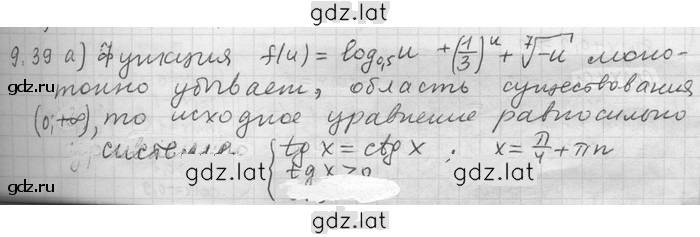 gdz.lat
9.39 а) Функция f(u) = log₀,₅u + (1/3)^u + ⁷√-u моно-
тонно убывает, область существования
gdz.lat gdz.lat
(0; +∞), то исходное уравнение равносильно
системе { tg x = ctg x ; x = π/4 + πn
gdz.lat tg x > 0 gdz.lat gdz.lat
gdz.lat